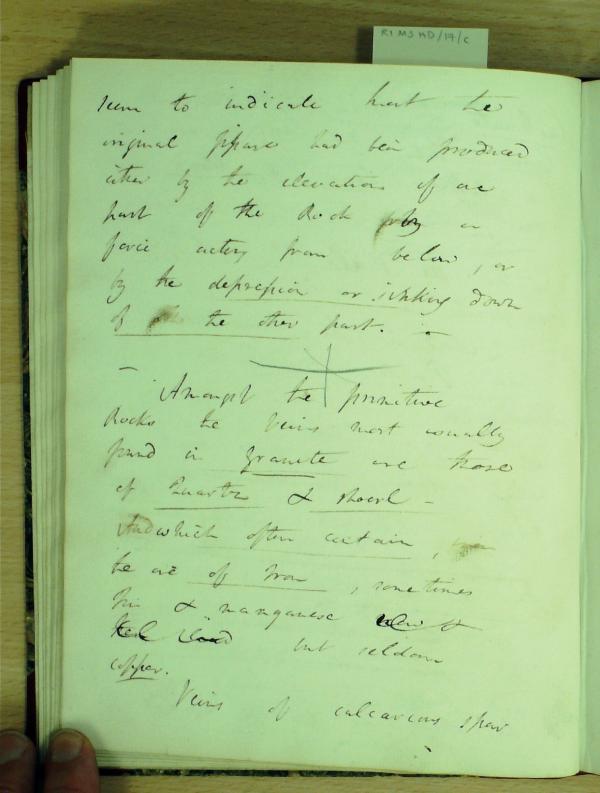 RI MS HD/17/c
seem to indicate that the
original fissure had been produced
either by the elevation of one
part of the Rock by a
force acting from below, or
by the depression or sinking down
of the other part. –
– Amongst the primitive
Rocks the Veins most usually
found in granite are those
of Quartz & shorl –
And which often contain,
the ore of Iron, sometimes
Tin & manganese
but seldom
copper.
Veins of calcareous spar